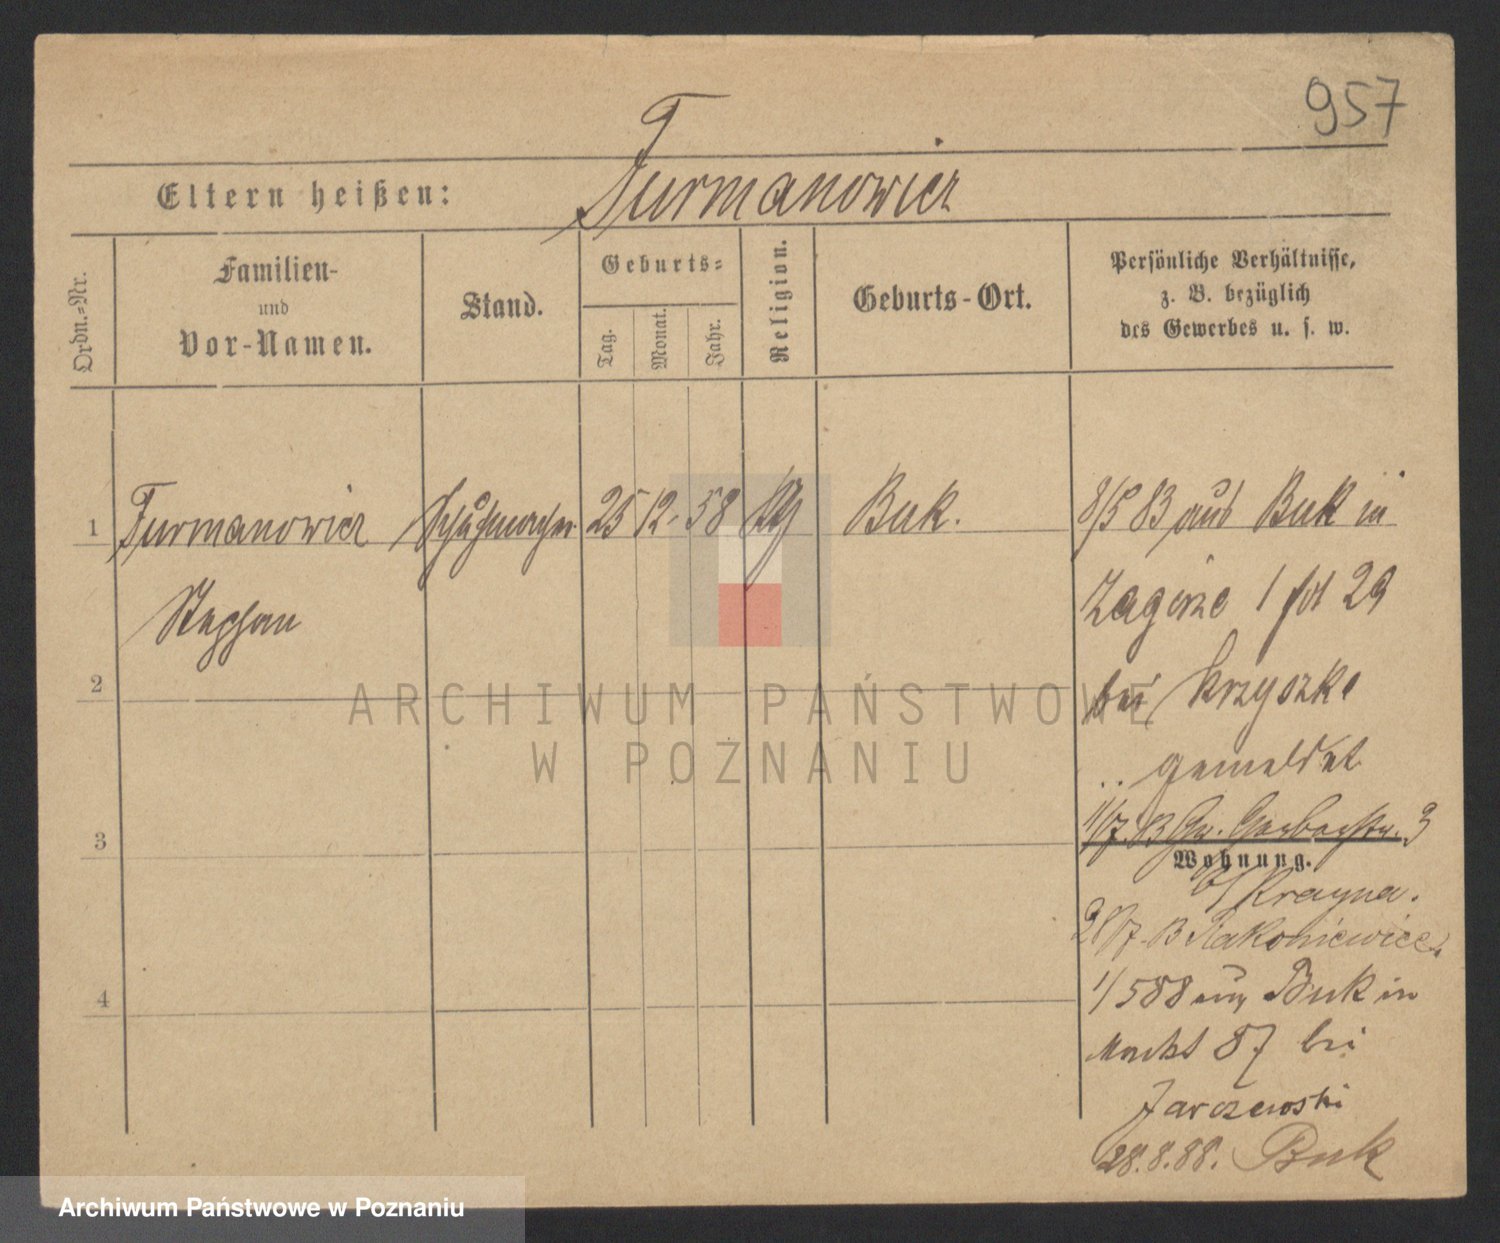 957
Furmanowicz
Eltern heißen:
Ordn.-Nr.
Familien-
und
Vor-Namen.
Stand.
Geburts-
Tag.
Monat.
Jahr.
Religion.
Geburts-Ort.
Persönliche Verhältnisse,
z. B. bezüglich
des Gewerbes u. s. w.
1 Furmanowicz Schuhmacher 25 12. 58 Buk. 8/5 83 aus Buk in
Stephan
Zagorze 1 29
2
bei Krzyszka
gemeldet
11/7. B 3
3
Wohnung.
b/ Krayna.
28/7. B Rakoniewice
4
1/588 Buk in
Markt 87 bei
Jarczewski
28.8.88. Buk
ARCHIWUM PAŃSTWOWE
W POZNANIU
Archiwum Państwowe w Poznaniu